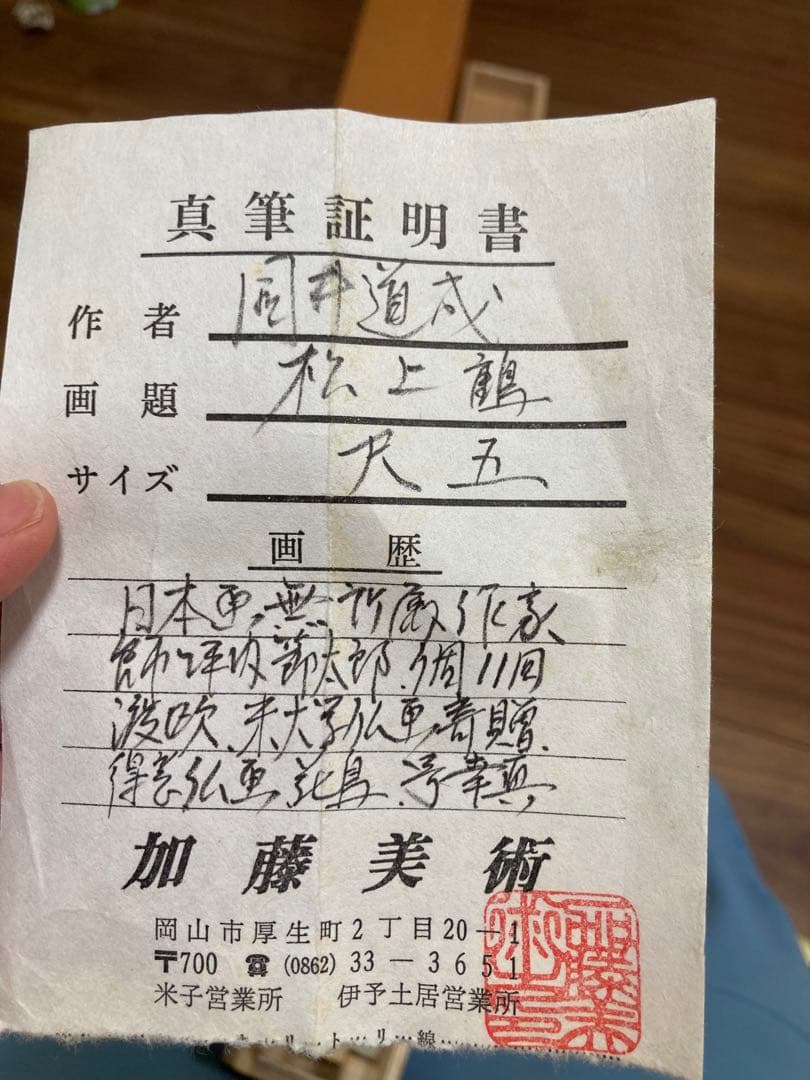 真筆証明書
作者 岡井道成
画題 松上鶴
サイズ 尺五
画歴
日本画、無所属作家
師坪内節太郎、個11回
渡欧、米大学仏画寄贈、
得意仏画花鳥、号幸真
加藤美術
岡山市厚生町2丁目20-1
〒700 ☎(0862)33-3651
米子営業所 伊予土居営業所
キリトリ線